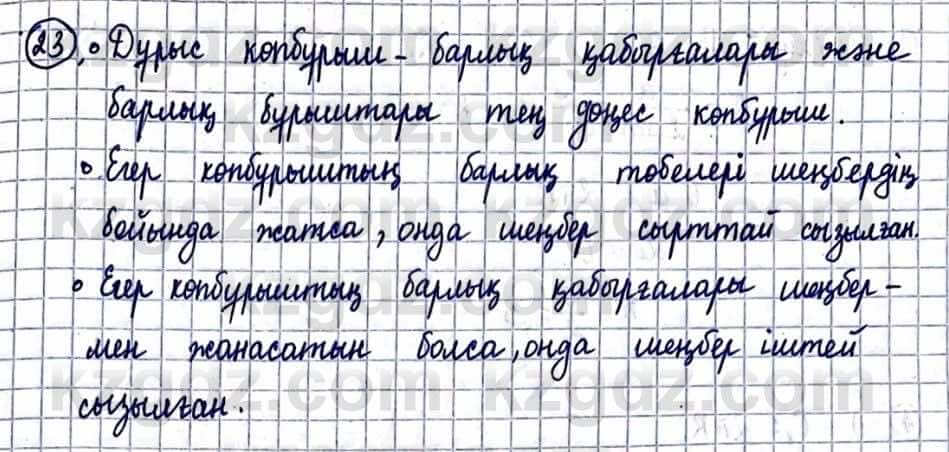 23. • Дұрыс көпбұрыш - барлық қабырғалары және
барлық бұрыштары тең дөңес көпбұрыш.
• Егер көпбұрыштың барлық төбелері шеңбердің
бойында жатса, онда шеңбер сырттай сызылған.
• Егер көпбұрыштың барлық қабырғалары шеңбер-
мен жанасатын болса, онда шеңбер іштей
сызылған.
kzgdz.com